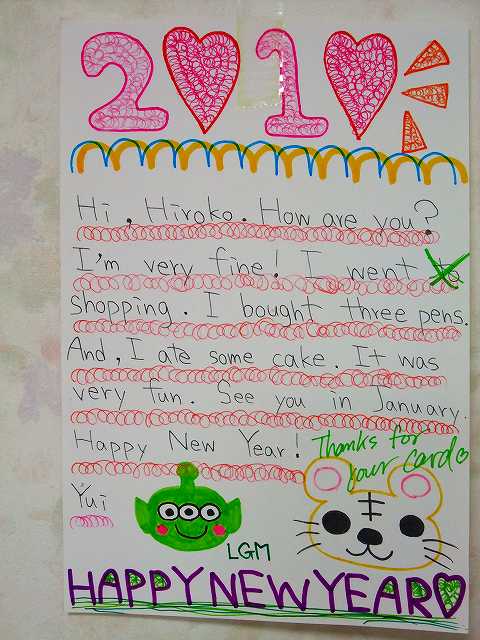 2010
Hi, Hiroko. How are you?
I'm very fine! I went to
shopping. I bought three pens.
And, I ate some cake. It was
very fun. See you in January.
Happy New Year!
Thanks for
your card
Yui
LGM
HAPPY NEW YEAR